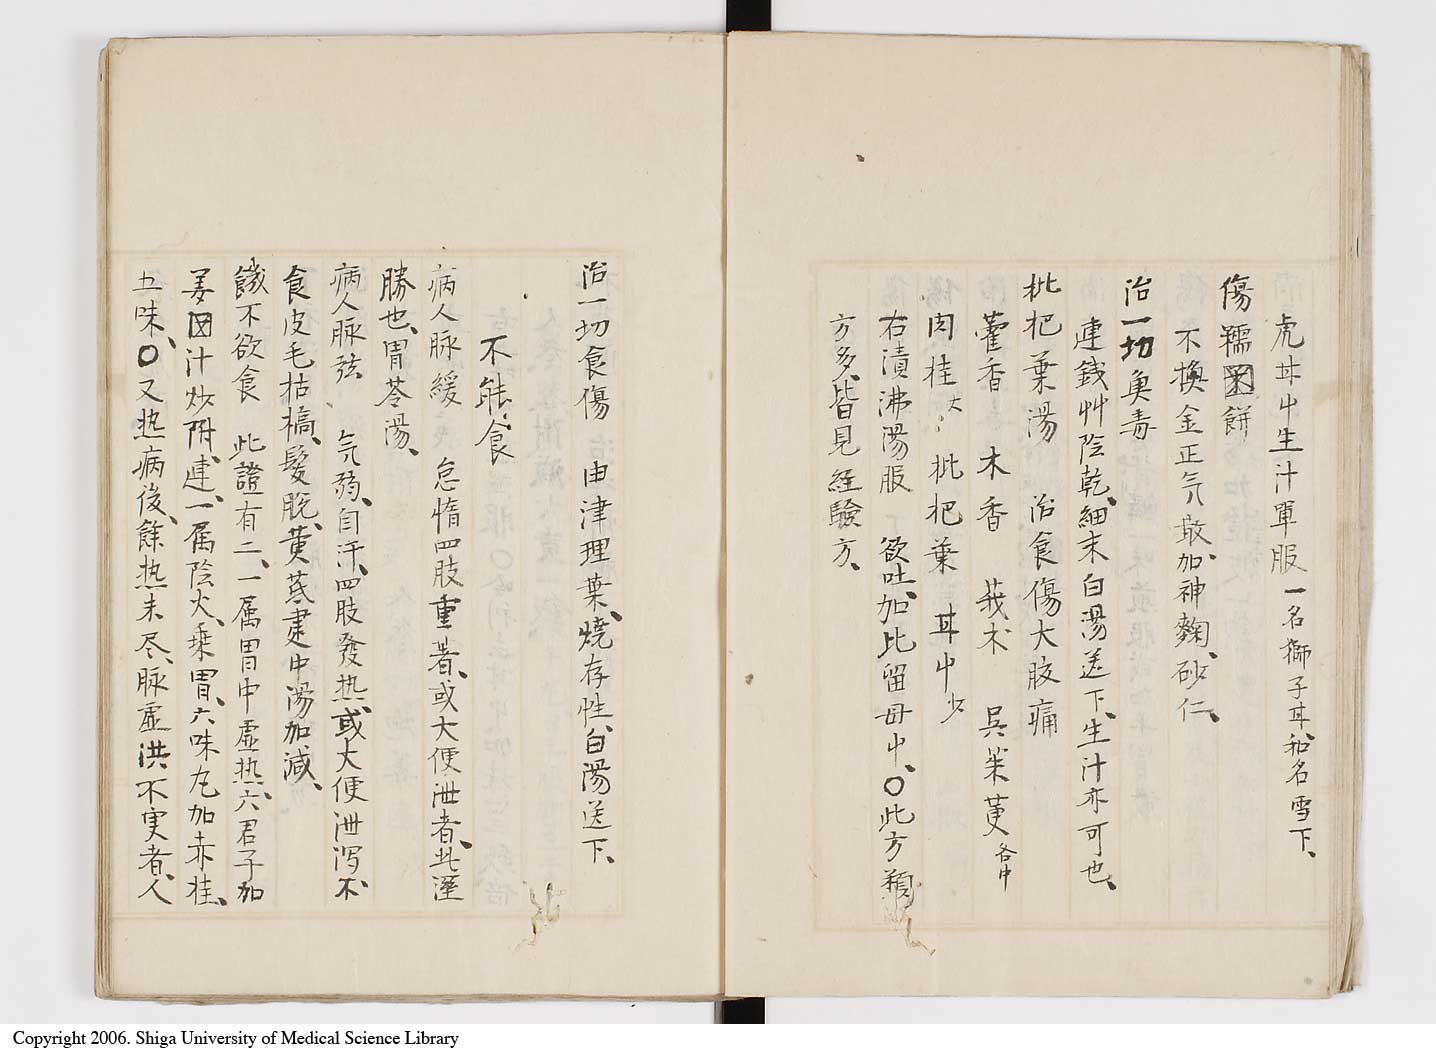 虎耳屮生汁單服 一名獅子耳、和名雪下、
傷糯囷餅
不換金正气散、加神麴、砂仁、
治一切魚毒
連錢艸陰乾、細末白湯送下、生汁亦可也、
枇杷葉湯 治食傷大腹痛
藿香 木香 莪朮 呉茱萸各中
肉桂大 枇杷葉 甘屮少
右漬沸湯服 欲吐、加比留毋屮、〇此方類
方多、皆見経驗方、
治一切食傷 由津理葉、燒存性、白湯送下、
不能食
病人脈緩 怠惰四肢重著、或大便泄者、此溼
勝也、胃苓湯、
病人脈弦 气弱、自汗、四肢發热、或大便泄泻不
食皮毛枯槁、髮脫、黄芪建中湯加減、
餓不欲食 此證有二、一属胃中虚热、六君子加
姜囡汁炒附、連、一属陰火、乘胃、六味丸加赤桂、
五味、〇又热病後、餘热未尽、脈虚洪不実者、人
Copyright 2006. Shiga University of Medical Science Library